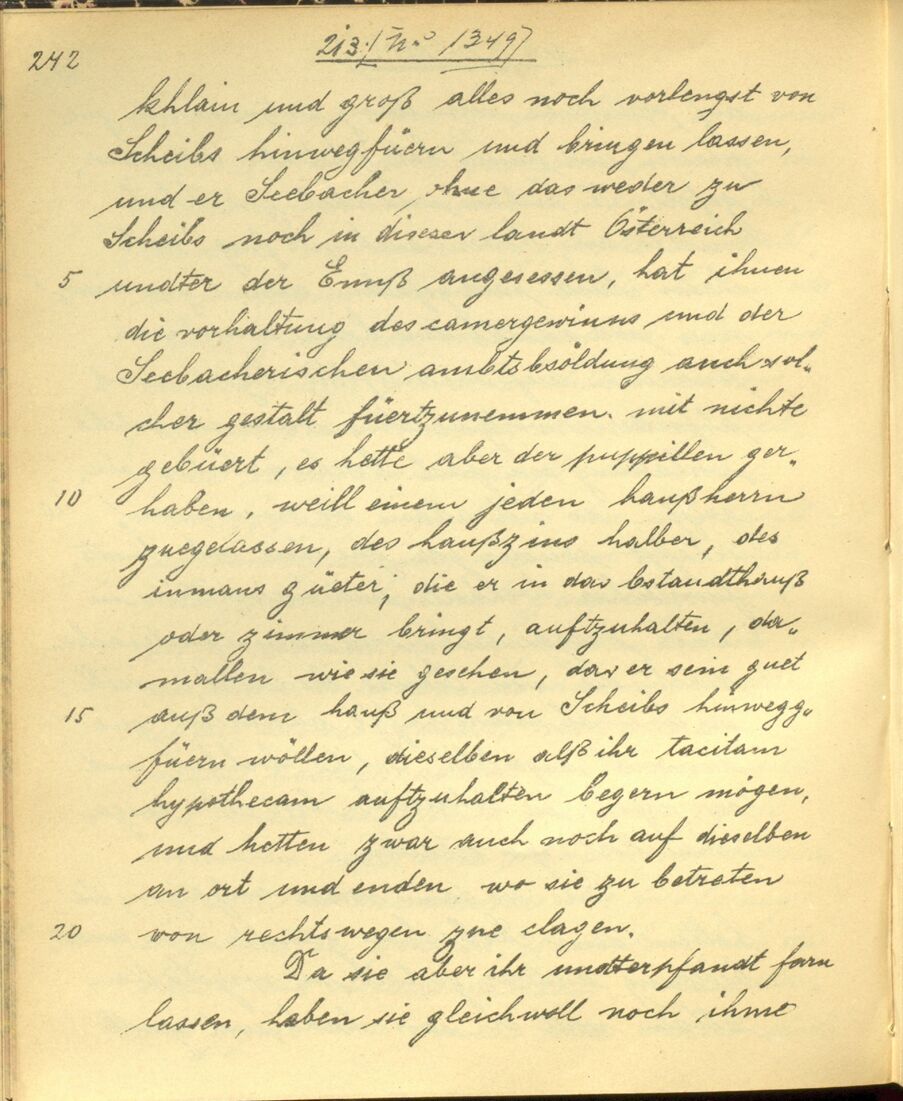 242
213./ No 1349)
khlain und groß alles noch vorlengst von
Scheibs hinwegfüern und bringen lassen,
und er Seebacher ohne das weder zu
Scheibs noch in disesen landt Österreich
5 undter der Ennß angesessen, hat ihnen
die vorhaltung des camergewinns und der
Seebacherischen ambtsbsöldung auch sol„
cher gestalt füertzunemmen mit nichte
gebüert, es hette aber der puppillen ger„
10 haben, weill einem jeden haußherrn
zuegelassen, des haußzins halber, des
inmans güeter, die er in das bstandthauß
oder zimmer bringt, auftzuhalten, da„
mallen wie sie gesehen, das er sein guet
15 auß dem hauß und von Scheibs hinwegg„
füern wöllen, dieselben alß ihr tacitam
hypothecam auftzuhalten begern mögen,
und hetten zwar auch noch auf dieselben
an ort und enden wo sie zu betreten
20 von rechtswegen zue clagen.
Da sie aber ihr undterpfandt farn
lassen, haben sie gleichwoll noch ihme